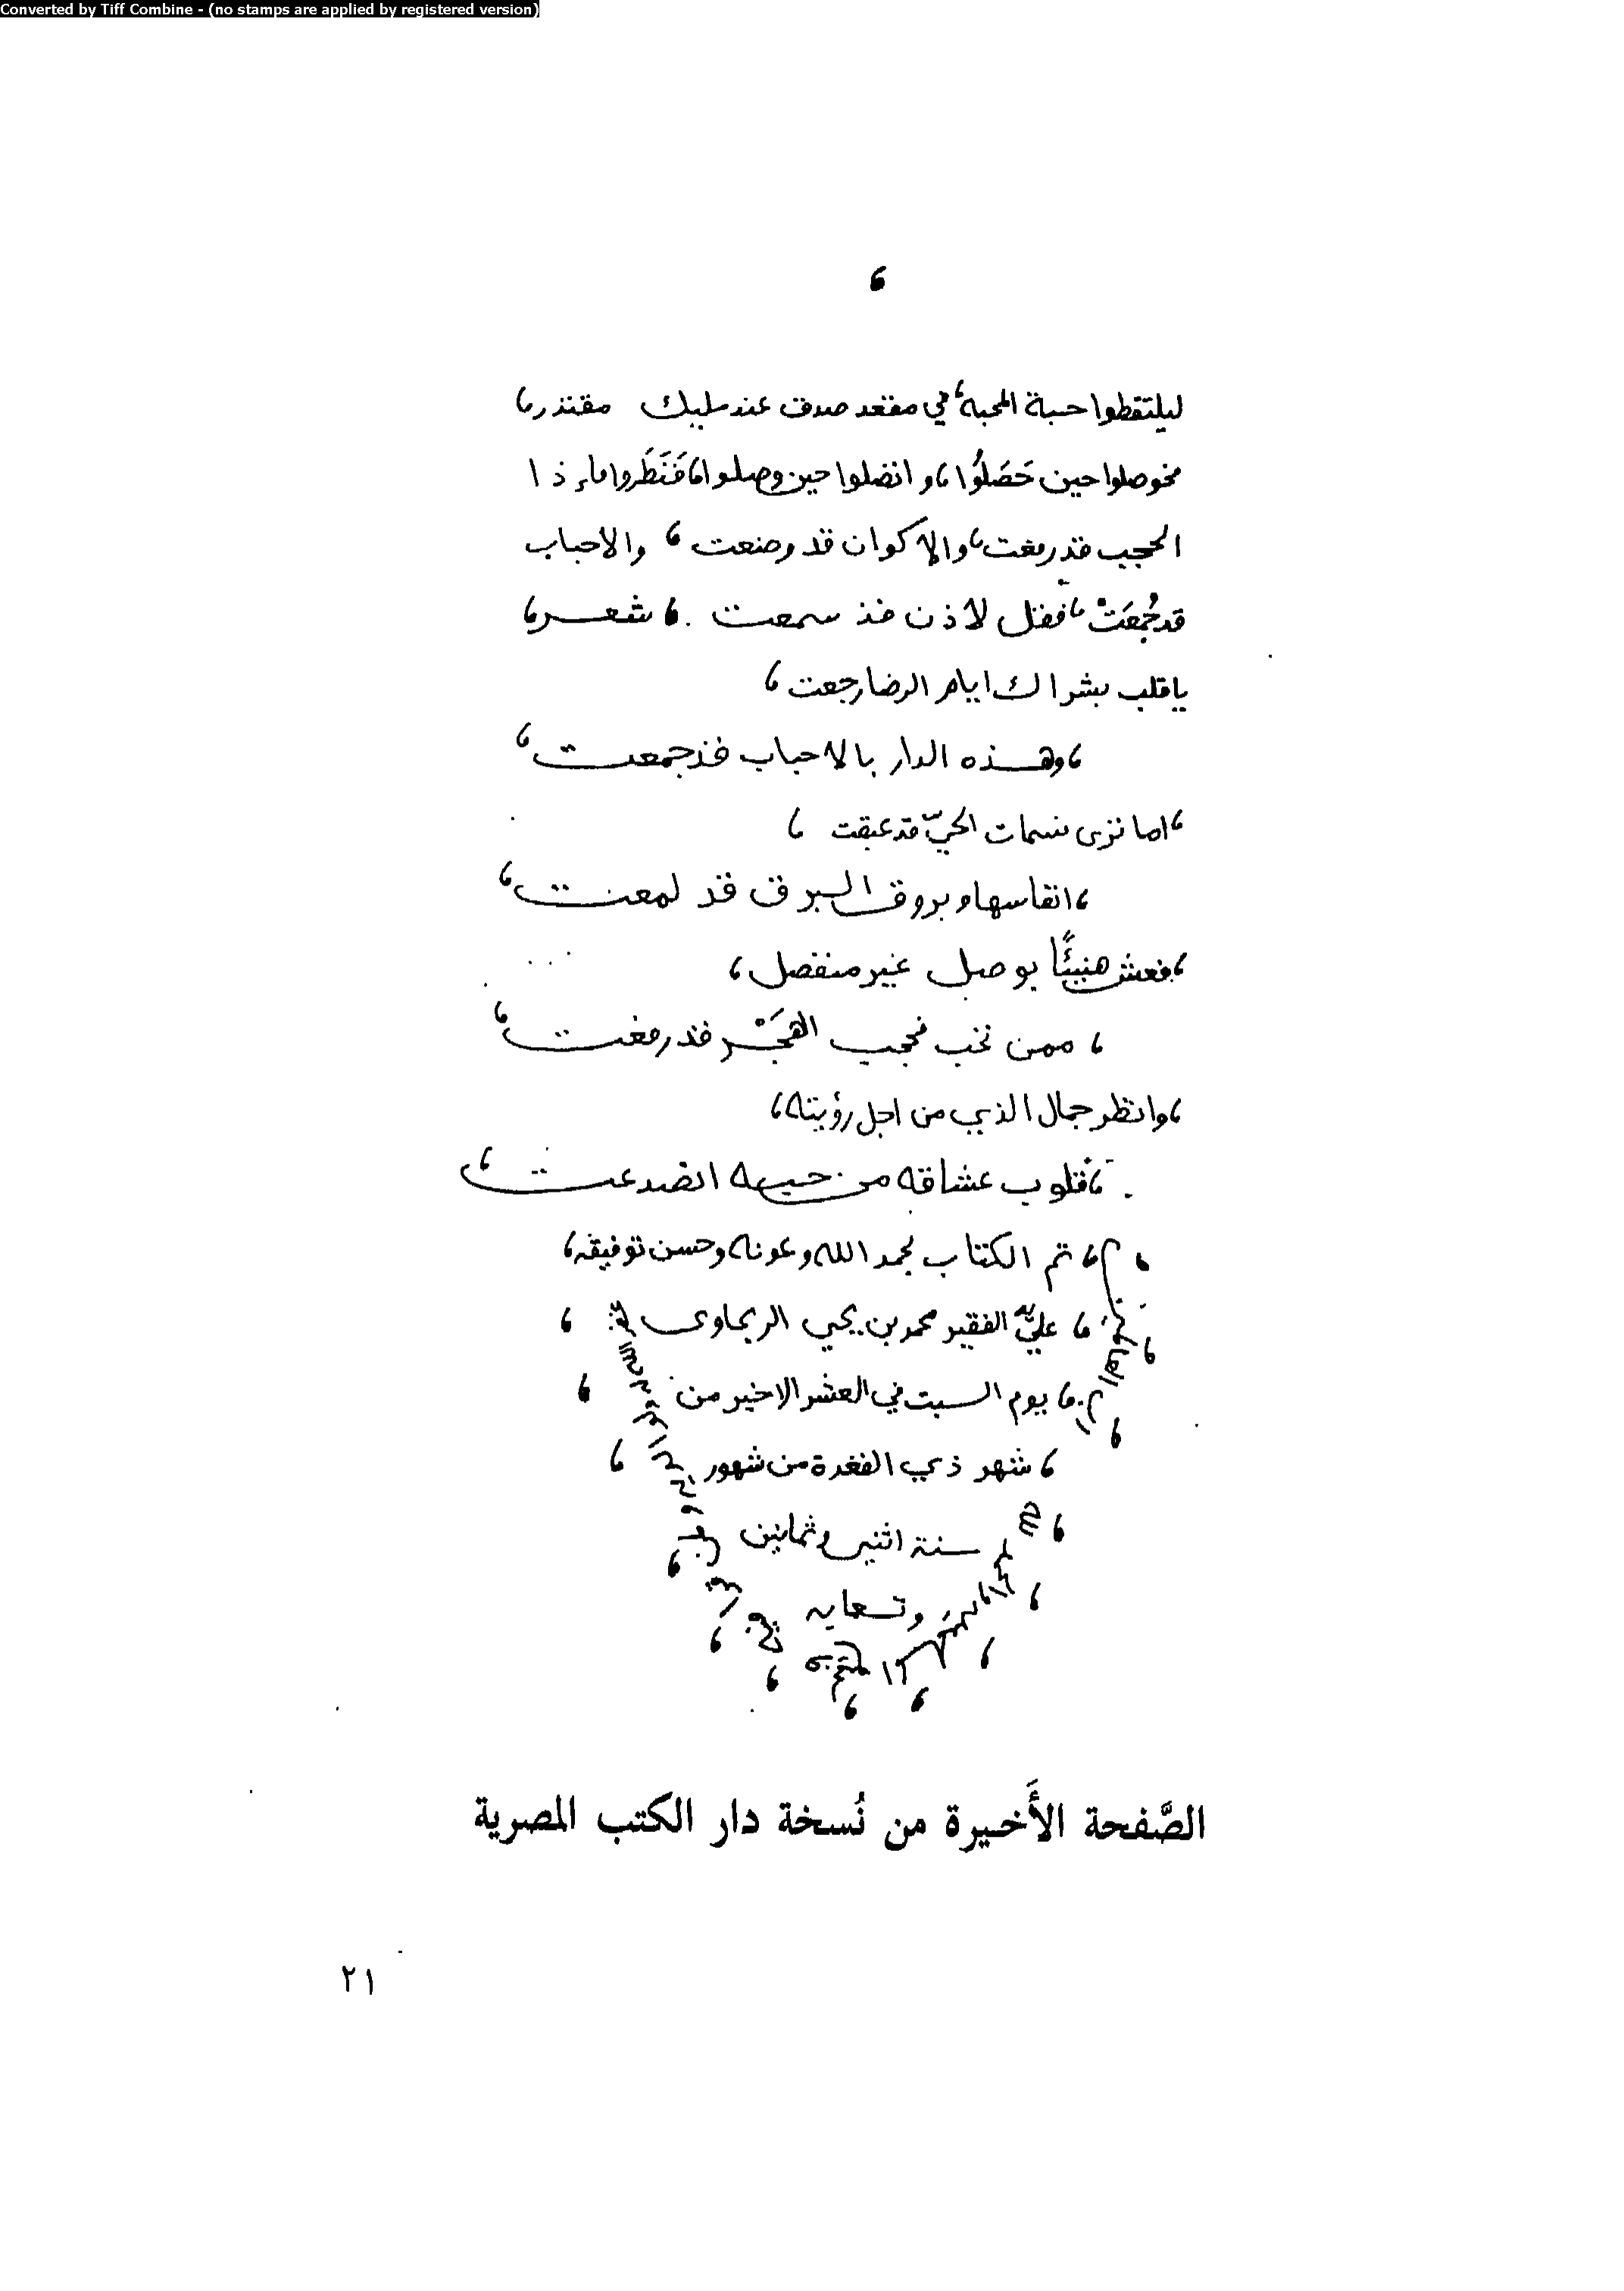 Converted by Tiff Combine - (no stamps are applied by registered version)
ليلتقطوا حبة المحبة في مقعد صدق عند مليك مقتدر
حين حَصَلُوا وانفصلوا حين وصلوا فَنَظَروا ماء ذا
الحجب قد رفعت والاكوان قد وضعت والاحباب
قد جُمِعَتْ فقل لاذن قد سمعت . شعر
يا قلب بشراك ايام الرضا رجعت
وهذه الدار بالاحباب قد جمعت
اما ترى نسمات الحيّ قد عبقت
انفاسها وبروق البرق قد لمعت
فعش هنيئًا بوصل غير منفصل
ممن تحب فحجب الهَجْر قد رفعت
وانظر جمال الذي من اجل رؤيته
قلوب عشاقه من حبه انصدعت
تم الكتاب بحمد الله وعونه وحسن توفيقه
علي يد الفقير محمد بن يحيي
يوم السبت في العشر الاخير من
شهر ذي القعدة من شهور
سنة اثنين وثمانين
وتسعمايه
الصَّفحة الأَخيرة من نُسخة دار الكتب المصرية
٢١